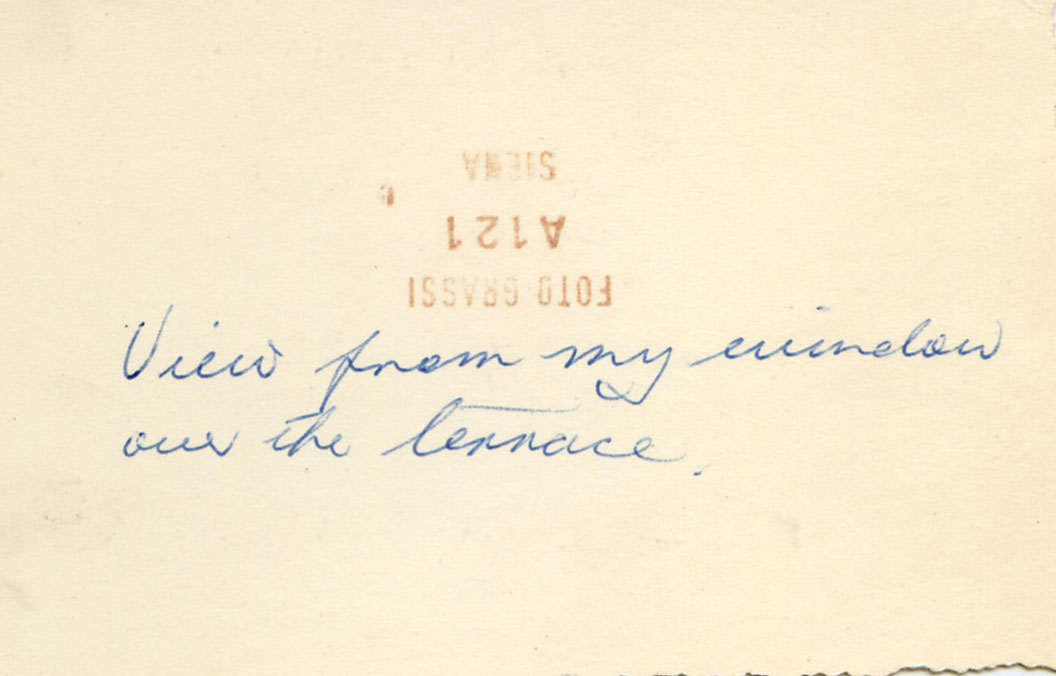 SIENA
A121
FOTO GRASSI
View from my window
over the terrace.